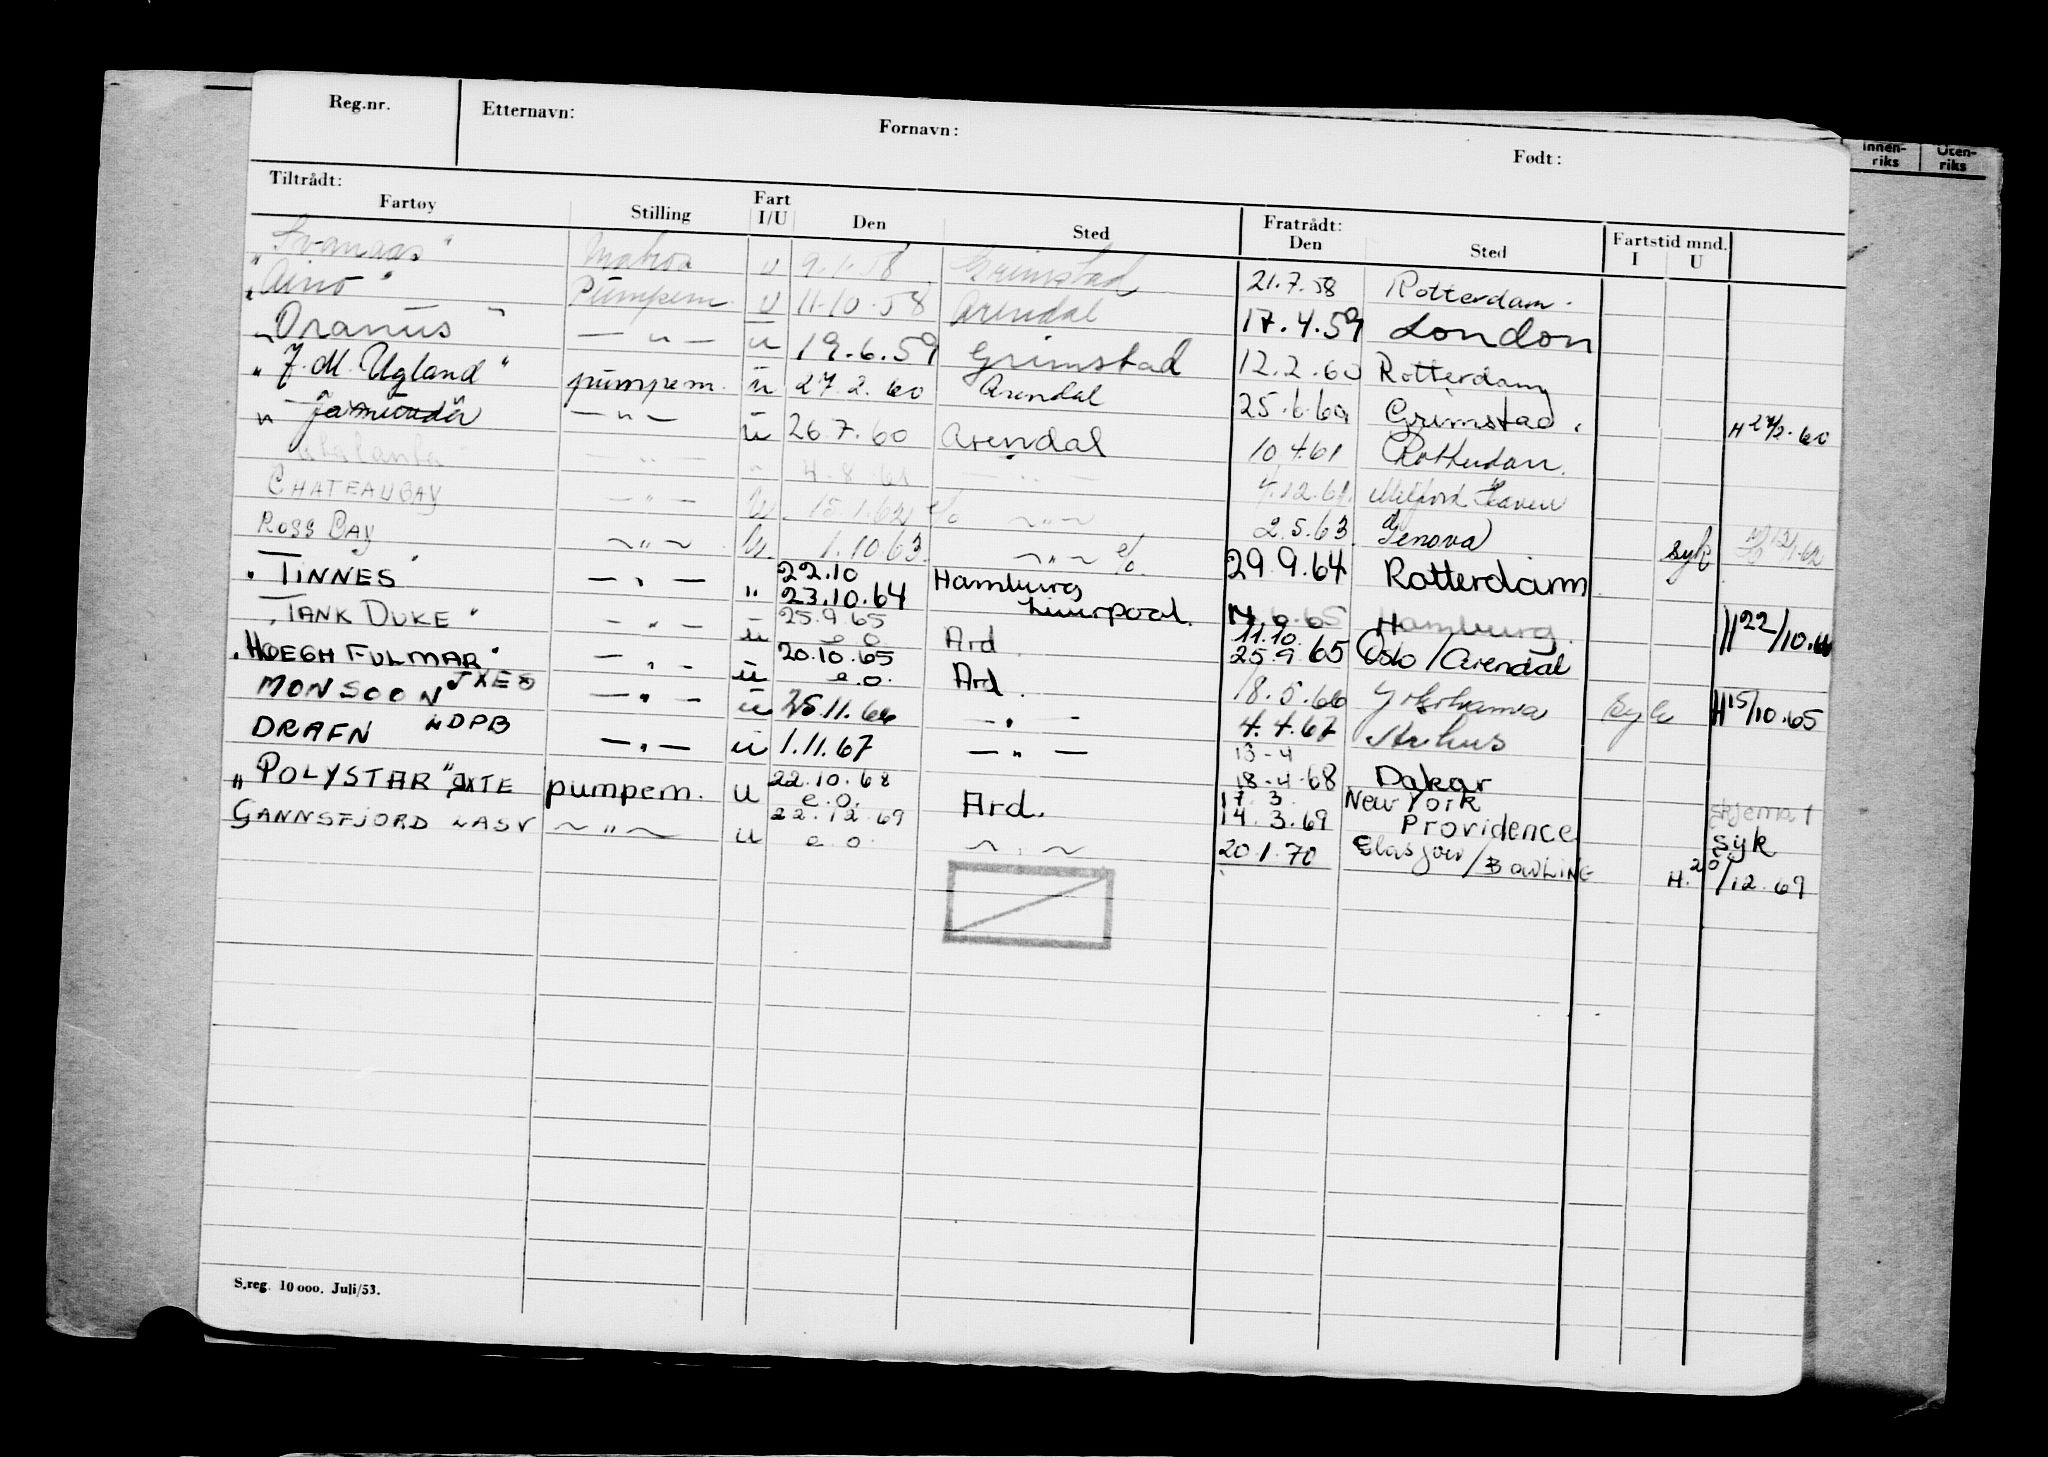 Reg.nr. Etternavn: Fornavn: Født: Innen-riks Uten-riks
Tiltrådt: Fartøy Stilling Fart I/U Den Sted Fratrådt: Den Sted Fartstid mnd. I U
"Svanaas" Matros u 9.1.58 Grimstad 21.7.58 Rotterdam.
"Aino" Pumpem. u 11.10.58 Arendal 17.4.59 London
"Oranus" — " — u 19.6.59 Grimstad 12.2.60 Rotterdam
"J. M. Ugland" pumpem. u 27.2.60 Arendal 25.6.60 Grimstad. H 27/2.60
— " — u 26.7.60 Arendal 10.4.61 Rotterdam.
Atalanta — " — " 4.8.61 — " — 4.12.61. Milford Haven
CHATEAUGAY — " — u. 15.1.62 e/o — " — 2.5.63 Genova syk
ROSS BAY — " — u. 1.10.63. — " — e/o. 29.9.64 Rotterdam
"TINNES" — " — " 22.10 23.10.64 Hamburg Liverpool. Hamburg. H 22/10.64
"TANK DUKE" — " — u 25.9.65 e.o. Ard. 11.10. 25.9.65 Oslo/Arendal
"HØEGH FULMAR" — " — u 20.10.65 e.o. Ard. 18.5.66 Yokohama Syk H 15/10.65
MONSOON JXEO — " — u 25.11.66 — " — 4.4.67 Aarhus
DRAFN LDPB — " — u 1.11.67 — " — 13-4 18-4-68 Dakar
"POLYSTAR" JXTE pumpem. u 22.10.68 e.o. Ard. 17.3. 14.3.69 New York Providence skjema 1 syk
GANNSFJORD LASV — " — u 22.12.69 e.o. — " — 20.1.70 Glasgow/BOWLING H. 20/12.69
S.reg. 10 000. Juli/53.